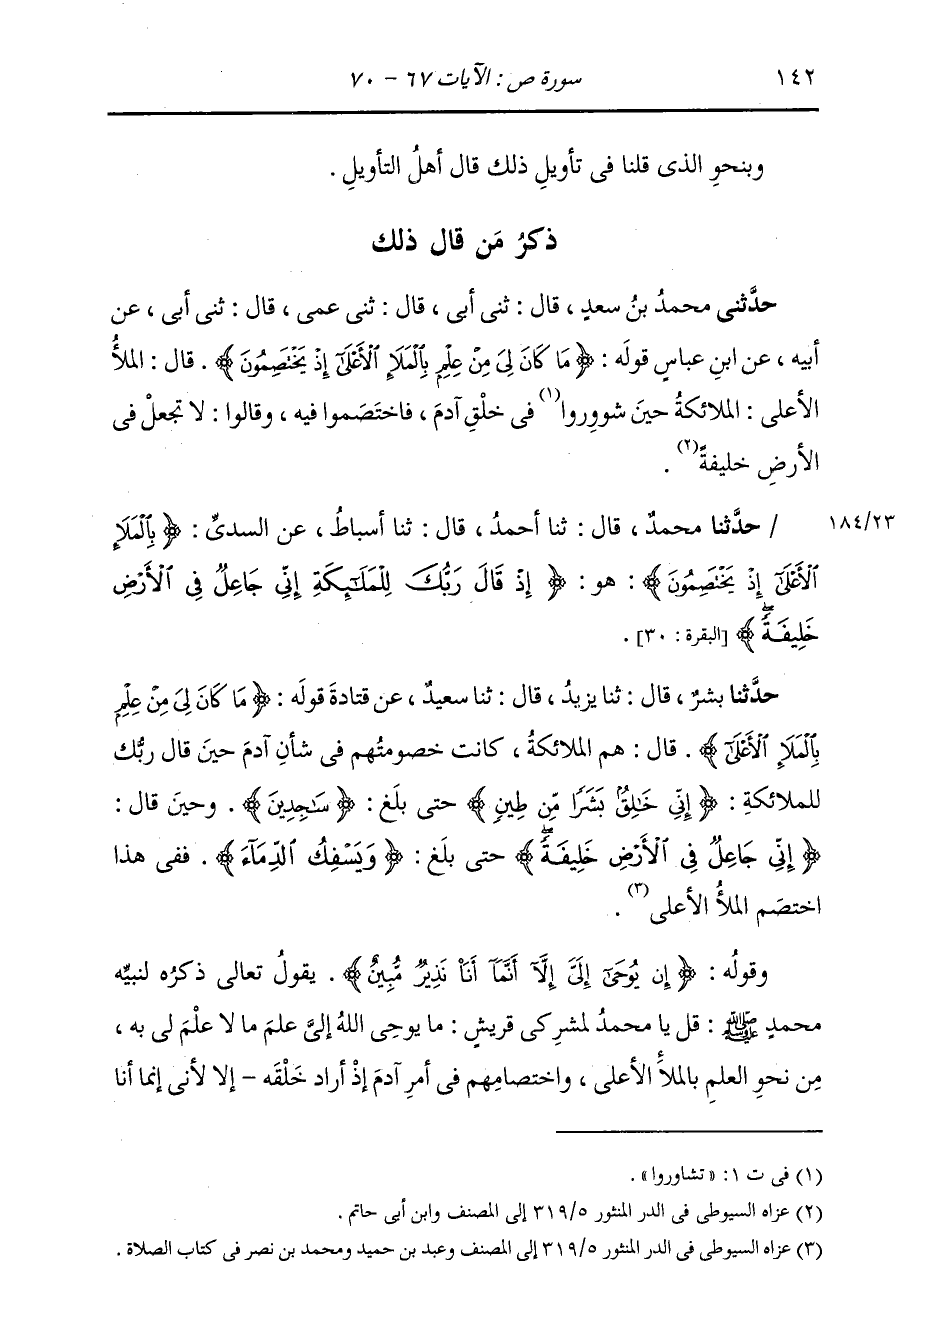 ١٤٢ سورة ص : الآيات ٦٧ - ٧٠
وبنحوِ الذى قلنا فى تأويلِ ذلك قال أهلُ التأويلِ .
ذكرُ مَن قال ذلك
حدَّثنى محمدُ بنُ سعدٍ ، قال : ثنى أبى ، قال : ثنى عمى ، قال : ثنى أبى ، عن
أبيه ، عن ابنِ عباسٍ قولَه : ﴿ مَا كَانَ لِىَ مِنْ عِلْمٍۭ بِٱلْمَلَإِ ٱلْأَعْلَىٰٓ إِذْ يَخْتَصِمُونَ ﴾ . قال : الملأُ
الأعلى : الملائكةُ حينَ شووِروا(١) فى خلْقِ آدمَ ، فاختَصَموا فيه ، وقالوا : لا تجعلْ فى
الأرضِ خليفةً(٢) .
١٨٤/٢٣ / حدَّثنا محمدٌ ، قال : ثنا أحمدُ ، قال : ثنا أسباطُ ، عن السدىِّ : ﴿ بِٱلْمَلَإِ
ٱلْأَعْلَىٰٓ إِذْ يَخْتَصِمُونَ ﴾ : هو : ﴿ إِذْ قَالَ رَبُّكَ لِلْمَلَٰٓئِكَةِ إِنِّى جَاعِلٌ فِى ٱلْأَرْضِ
خَلِيفَةً ۖ ﴾ [البقرة : ٣٠] .
حدَّثنا بشرٌ ، قال : ثنا يزيدُ ، قال : ثنا سعيدٌ ، عن قتادةَ قولَه : ﴿ مَا كَانَ لِىَ مِنْ عِلْمٍۭ
بِٱلْمَلَإِ ٱلْأَعْلَىٰٓ ﴾ . قال : هم الملائكةُ ، كانت خصومتُهم فى شأنِ آدمَ حينَ قال ربُّك
للملائكةِ : ﴿ إِنِّى خَٰلِقٌۢ بَشَرًا مِّن طِينٍ ﴾ حتى بلَغ : ﴿ سَٰجِدِينَ ﴾ . وحينَ قال :
﴿ إِنِّى جَاعِلٌ فِى ٱلْأَرْضِ خَلِيفَةً ۖ ﴾ حتى بلَغ : ﴿ وَيَسْفِكُ ٱلدِّمَآءَ ﴾ . ففى هذا
اختصَم الملأُ الأعلى(٣) .
وقولُه : ﴿ إِن يُوحَىٰٓ إِلَىَّ إِلَّآ أَنَّمَآ أَنَا۠ نَذِيرٌ مُّبِينٌ ﴾ . يقولُ تعالى ذكرُه لنبيِّه
محمدٍ ﷺ : قل يا محمدُ لمشرِكى قريشٍ : ما يوحِى اللهُ إلىَّ علمَ ما لا علْمَ لى به ،
مِن نحوِ العلمِ بالملأَ الأعلى ، واختصامِهم فى أمرِ آدمَ إذْ أراد خَلْقَه - إلا لأنى إنما أنا
(١) فى ت ١ : «تشاوروا» .
(٢) عزاه السيوطى فى الدر المنثور ٣١٩/٥ إلى المصنف وابن أبى حاتم .
(٣) عزاه السيوطى فى الدر المنثور ٣١٩/٥ إلى المصنف وعبد بن حميد ومحمد بن نصر فى كتاب الصلاة .